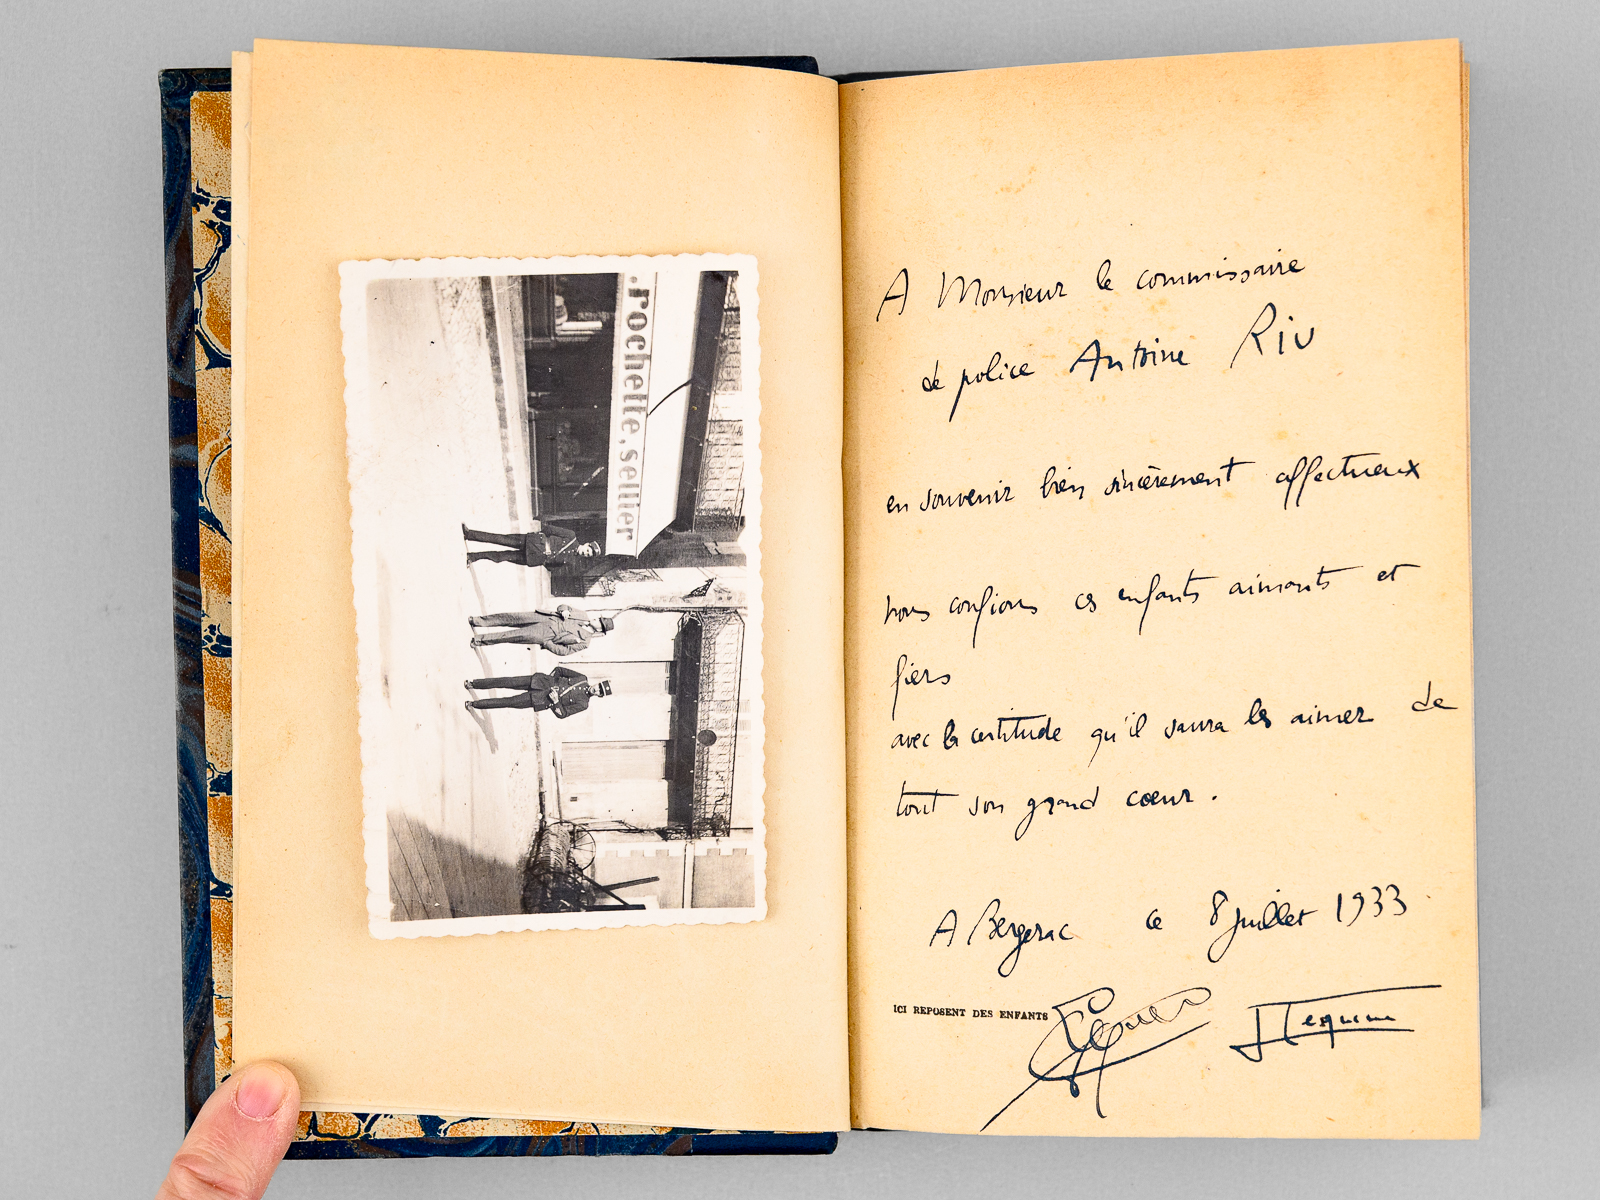 .rochette, sellier
A Monsieur le commissaire
de police Antoine Riu
en souvenir bien sincèrement affectueux
nous confions ces enfants aimants et
fiers
avec la certitude qu'il saura les aimer de
tout son grand cœur.
A Bergerac ce 8 juillet 1933
ICI REPOSENT DES ENFANTS